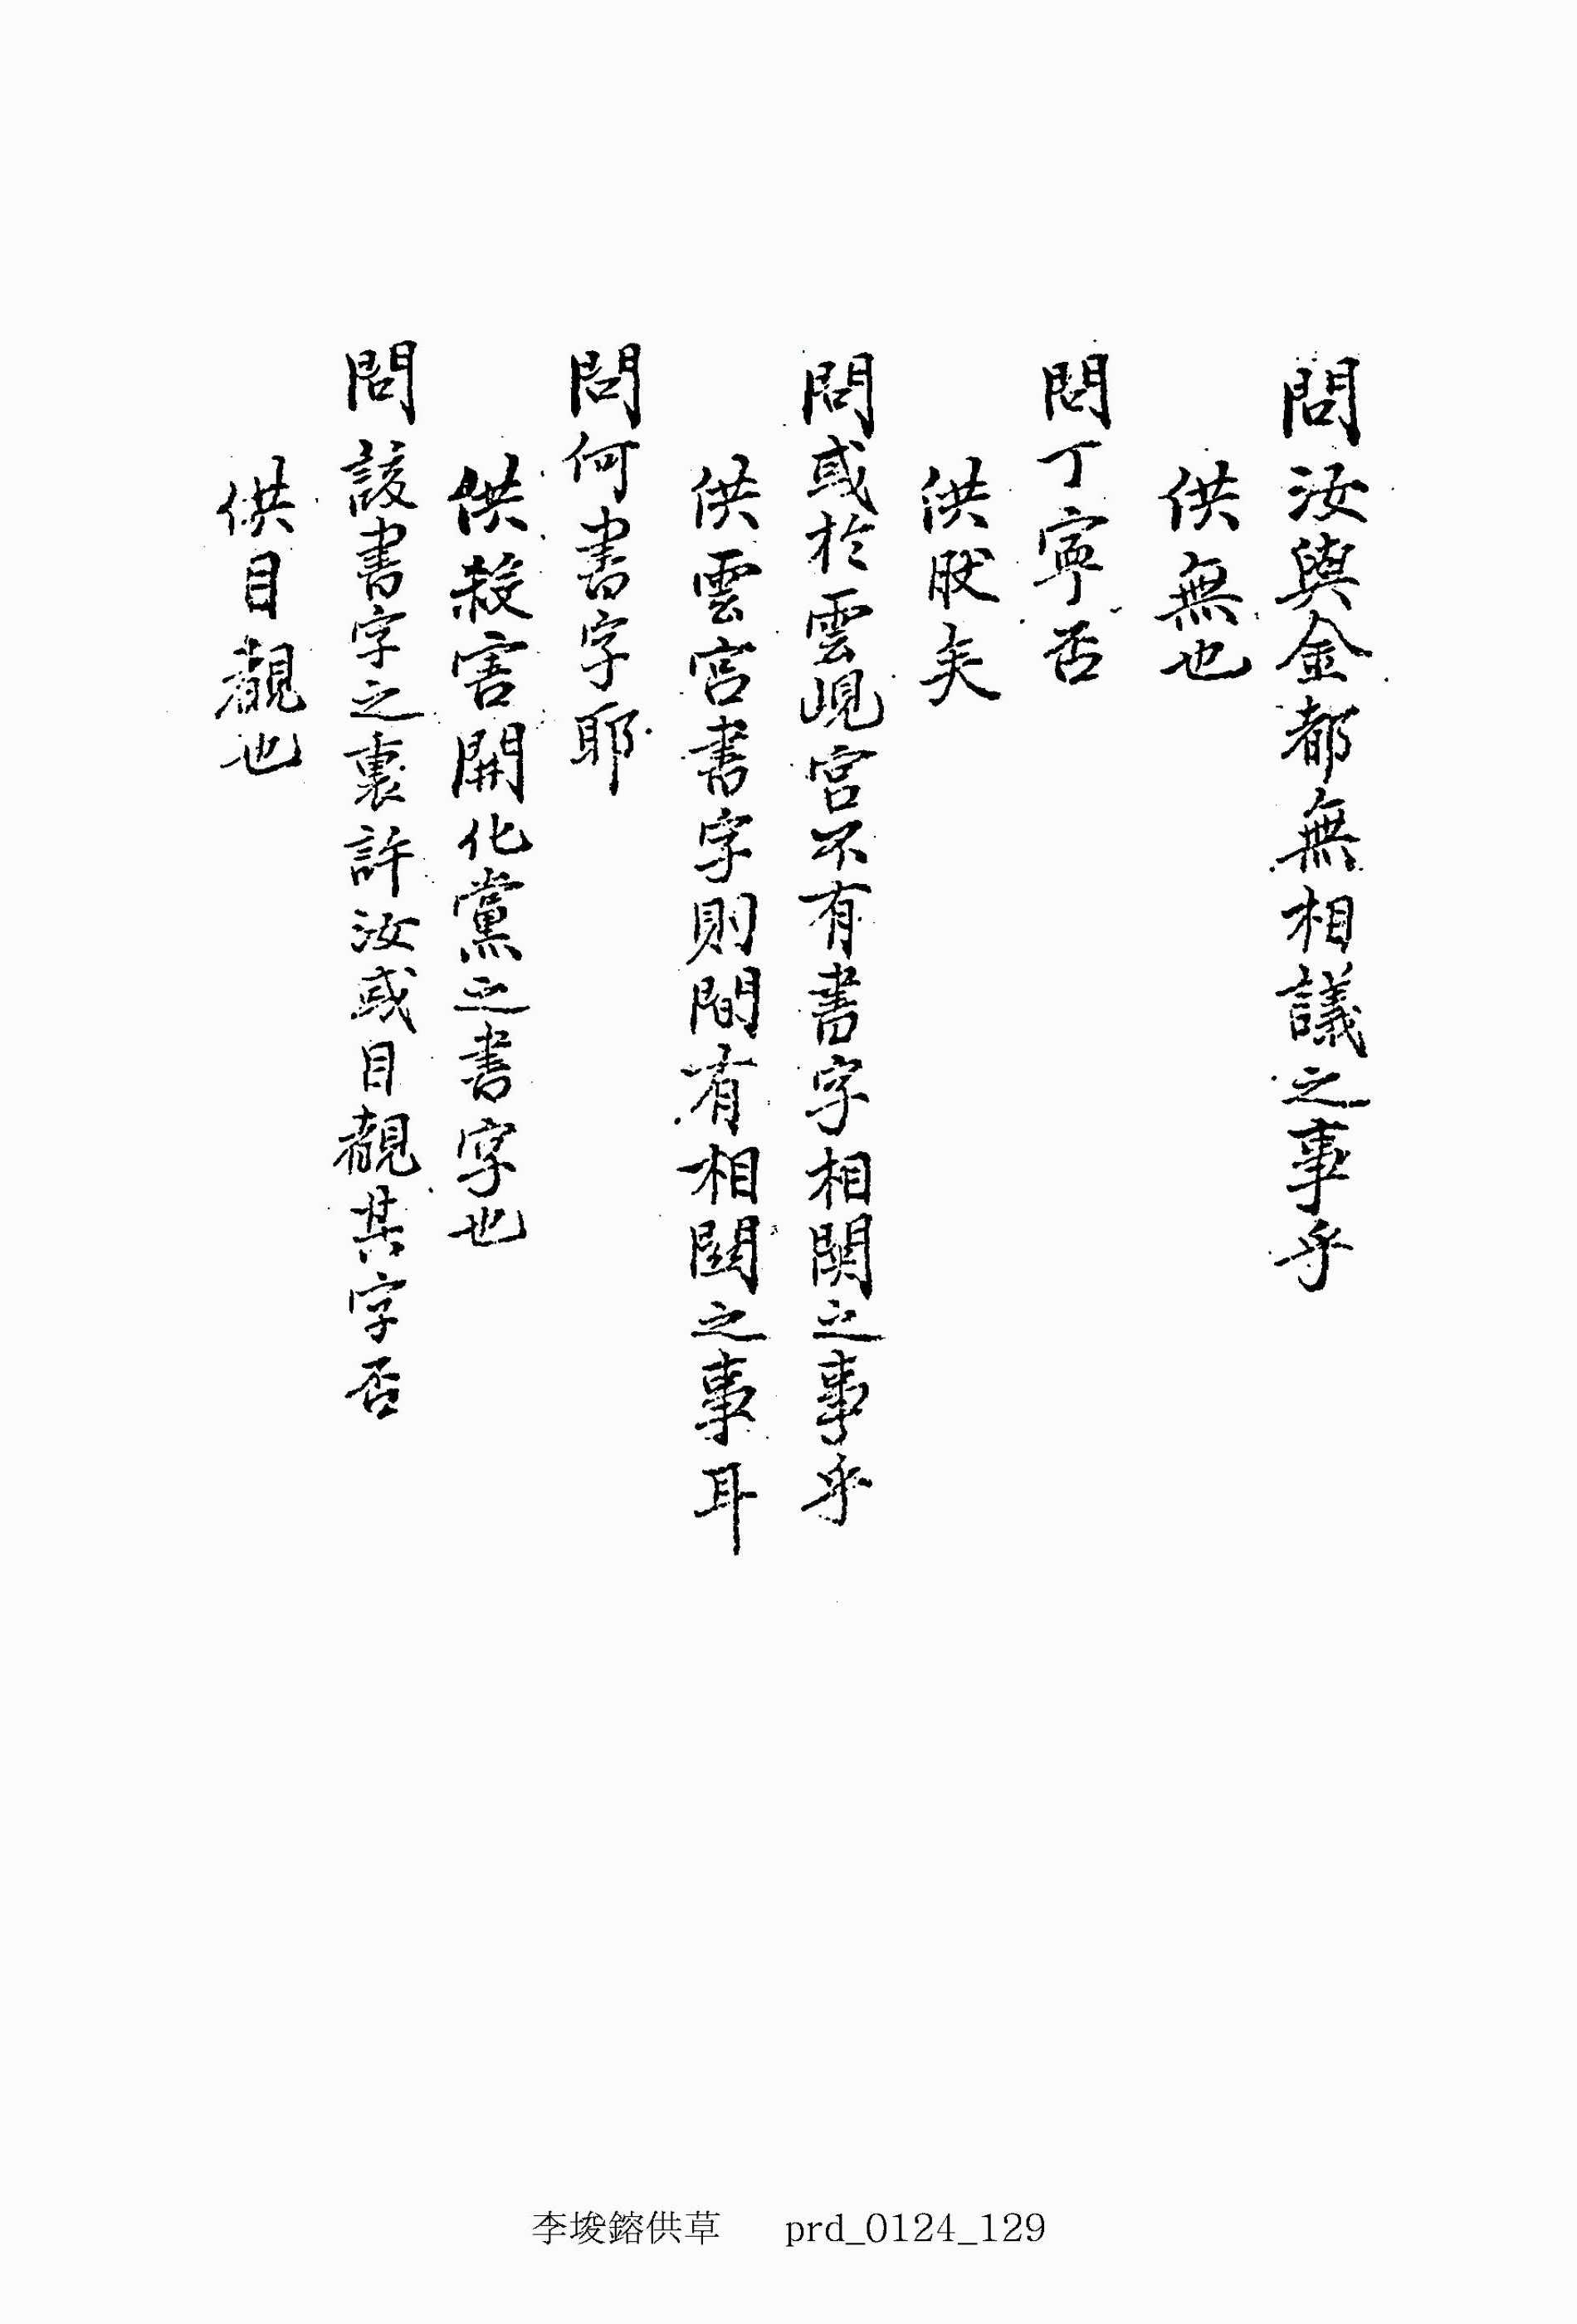 問汝與金都無相議之事乎
供無也
問丁寧否
供肰矣
問或於雲峴宮不有書字相関之事乎
供雲宮書字則間有相関之事耳
問何書字耶
供殺害開化黨之書字也
問該書字之裏許汝或目覩其字否
供目覩也
李埈鎔供草 prd_0124_129